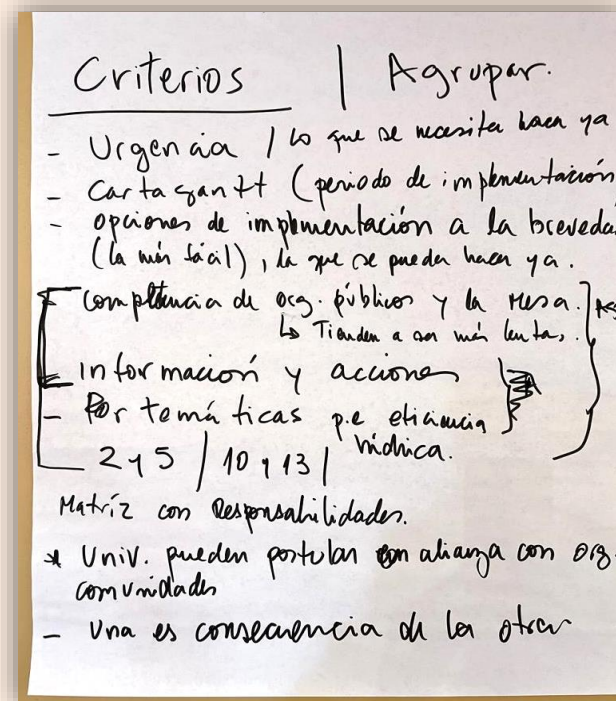 Criterios | Agrupar.
- Urgencia / lo que se necesita hacer ya
- Carta gantt (periodo de implementación
- opciones de implementación a la breveda
(la más fácil), la que se pueda hacer ya.
- Competencia de org. públicos y la mesa.
↳ Tienden a ser más lentas.
- información y acciones
- Por temáticas p.e eficiencia
hídrica.
2 y 5 / 10 y 13 /
Matríz con Responsabilidades.
* Univ. pueden postular en alianza con org.
comunidades
- Una es consecuencia de la otra